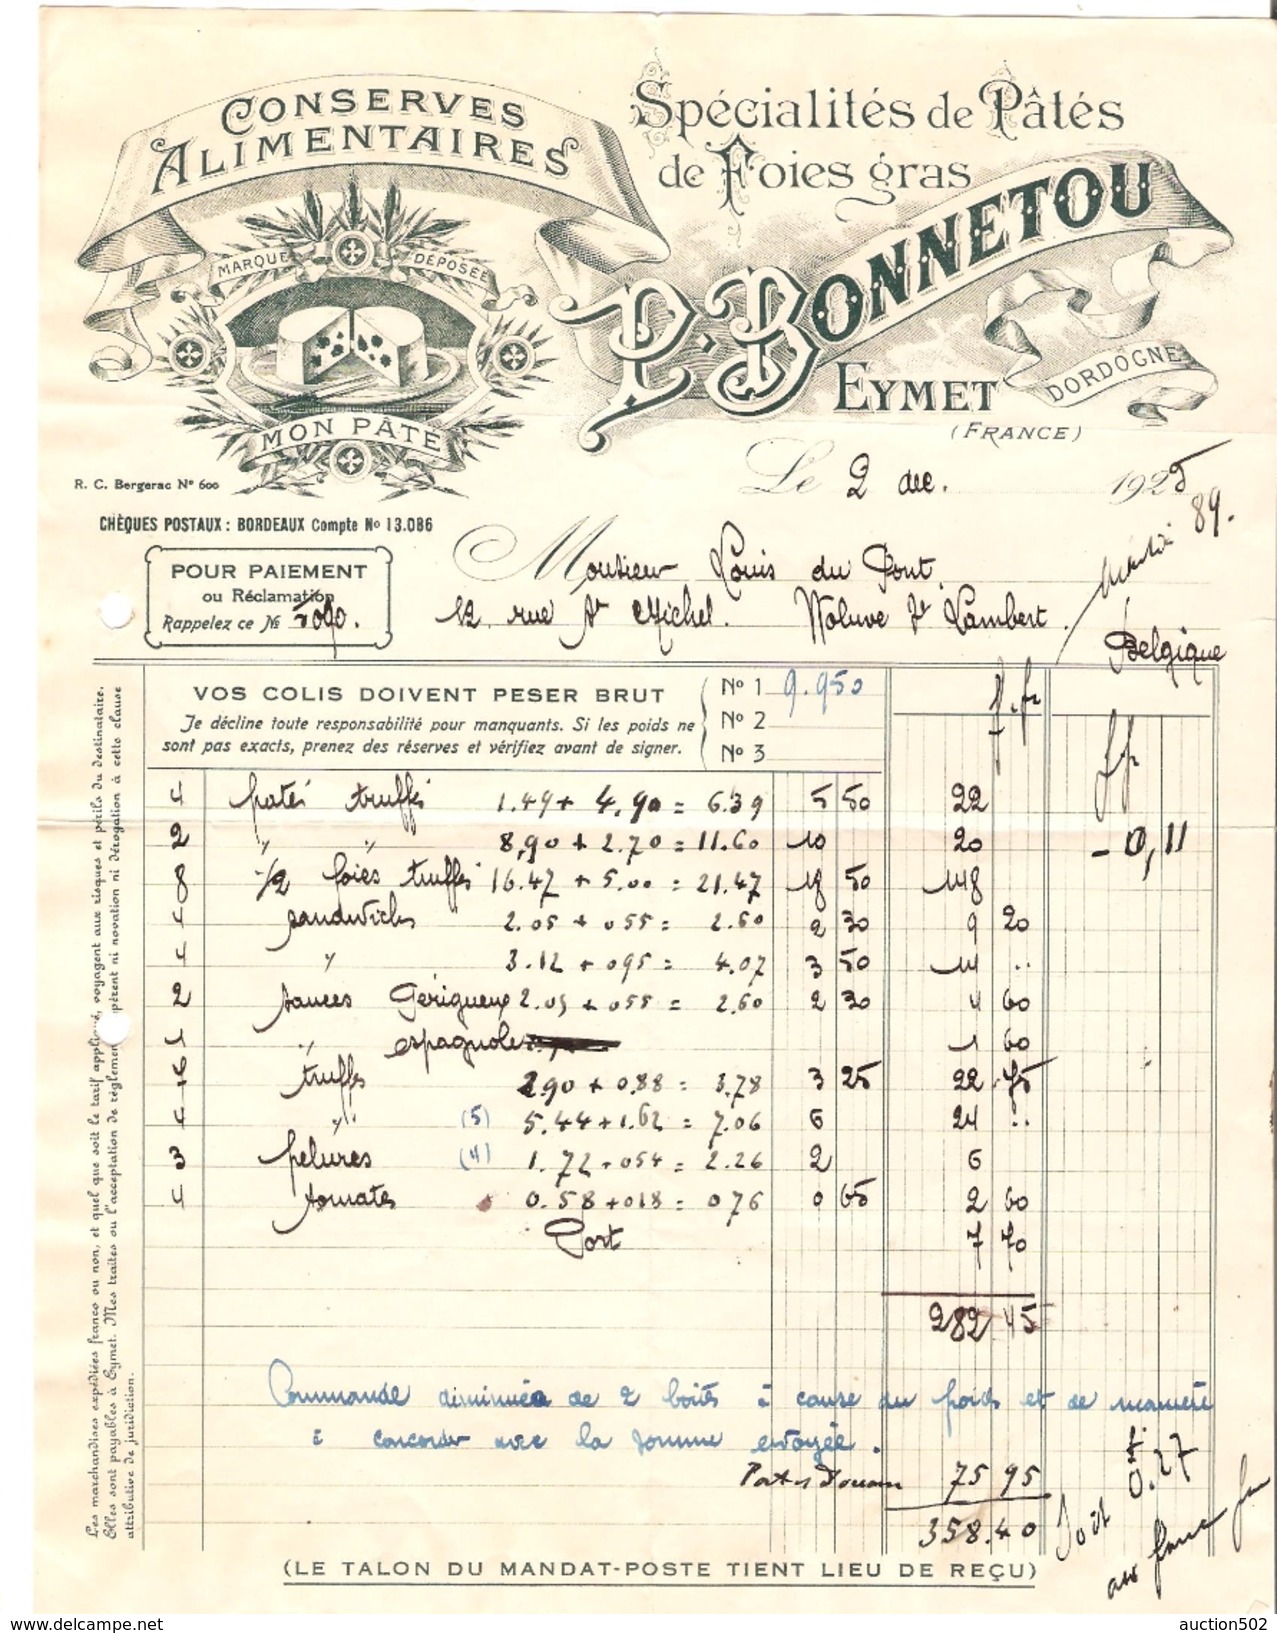 CONSERVES
ALIMENTAIRES
MARQUE DÉPOSÉE
MON PÂTÉ
Spécialités de Pâtés
de Foies gras
P. BONNETOU
EYMET
DORDOGNE
(FRANCE)
R. C. Bergerac Nº 600
Le 2 dec. 1925
CHÈQUES POSTAUX : BORDEAUX Compte Nº 13.086
89.
Monsieur Louis du Pont
POUR PAIEMENT
ou Réclamation
Rappelez ce №
12 rue St Michel. Woluve St Lambert.
Belgique
VOS COLIS DOIVENT PESER BRUT
Je décline toute responsabilité pour manquants. Si les poids ne
sont pas exacts, prenez des réserves et vérifiez avant de signer.
Nº 1 9.950
Nº 2
Nº 3
f.fr
4 patés truffés 1.49 + 4.90 = 6.39 5 50 22
2 " " 8,90 + 2.70 = 11.60 10 20 - 0,11
8 1/2 foies truffés 16.47 + 5.00 = 21.47 18 50 148
4 sandwichs 2.05 + 055 = 2.60 2 30 9 20
4 " 3.12 + 095 = 4.07 3 50 14 ..
2 sauces Périgueux 2.05 + 055 = 2.60 2 30 4 60
1 " espagnole 1 60
truffes 2.90 + 0.88 = 3.78 3 25 22 75
4 " (5) 5.44 + 1.62 = 7.06 6 24 ..
3 pelures (4) 1.72 + 054 = 2.26 2 6
4 tomates 0.58 + 018 = 076 0 65 2 60
Port 7 70
282 45
Commande diminuée de 2 boîtes à cause du poids et de manière
à concorder avec la somme envoyée.
Port et Douane 75 95
358.40
Soit 0.27
au franc
Les marchandises expédiées franco ou non, et quel que soit le tarif appliqué, voyagent aux risques et périls du destinataire.
Elles sont payables à Eymet. Mes traites ou l'acceptation de règlement n'opèrent ni novation ni dérogation à cette clause
attributive de juridiction.
(LE TALON DU MANDAT-POSTE TIENT LIEU DE REÇU)
auction502